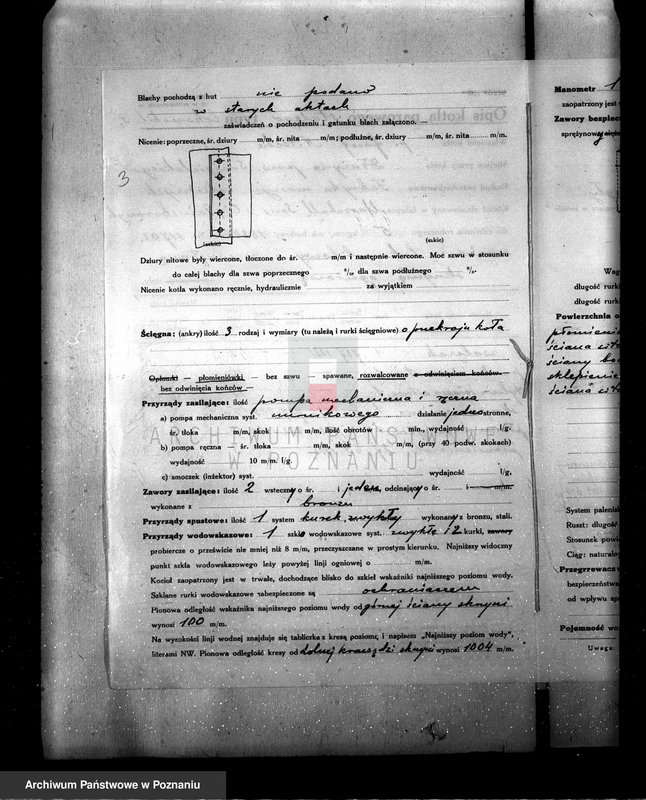 Blachy pochodzą z hut nie podano
w starych aktach
zaświadczeń o pochodzeniu i gatunku blach załączono.
Nicenie: poprzeczne, śr. dziury m/m, śr. nita m/m; podłużne, śr. dziury m/m, śr. nita m/m.
3
(szkic) (szkic)
Dziury nitowe były wiercone, tłoczone do śr. m/m i następnie wiercone. Moc szwu w stosunku
do całej blachy dla szwa poprzecznego % dla szwa podłużnego %.
Nicenie kotła wykonano ręcznie, hydraulicznie za wyjątkiem
Ścięgna: (ankry) ilość 3 rodzaj i wymiary (tu należą i rurki ścięgniowe) o przekroju koła
Opłomki — płomieniówki — bez szwu — spawane, rozwalcowane z odwinięciem końców—
bez odwinięcia końców —
Przyrządy zasilające: ilość pompa mechaniczna i ręczna
a) pompa mechaniczna syst. nurnikowego działanie jednostronne,
śr. tłoka m/m, skok m/m, ilość obrotów min., wydajność l/g.
b) pompa ręczna — śr. tłoka m/m, skok m/m, (przy 40 podw. skokach)
wydajność 10 m/m. l/g.
c) smoczek (inżektor) syst. wydajność l/g,
Zawory zasilające: ilość 2 wsteczny o śr. i jeden odcinający o śr. i m/m.
wykonane z bronzu
Przyrządy spustowe: ilość 1 system kurek zwykły wykonany z bronzu, stali.
Przyrządy wodowskazowe: 1 szkło wodowskazowe syst. zwykłe i 2 kurki, zawory
probiercze o prześwicie nie mniej niż 8 m/m, przeczyszczane w prostym kierunku. Najniższy widoczny
punkt szkła wodowskazowego leży powyżej linji ogniowej o m/m.
Kocioł zaopatrzony jest w trwałe, dochodzące blisko do szkieł wskaźniki najniższego poziomu wody.
Szklane rurki wodowskazowe zabezpieczone są ochraniaczem
Pionowa odległość wskaźnika najniższego poziomu wody od górnej ściany skrzyni
wynosi 100 m/m.
Na wysokości linji wodnej znajduje się tabliczka z kresą poziomą i napisem „Najniższy poziom wody",
literami NW. Pionowa odległość kresy od dolnej krawędzi skrzyni wynosi 1004 m/m.
Manometr 1
zaopatrzony jest
Zawory bezpiec
sprężynowy
Wag
długość rurk
długość rurki
Powierzchnia o
płomieni
ściana sit
ściany bo
sklepienie
ściana sit
System palenis
Ruszt: długość
Stosunek pow
Ciąg: naturalny
Przegrzewacz:
bezpieczeństwa
od wpływu sp
Pojemność wo
Uwaga:
ARCHIWUM PAŃSTWOWE
W POZNANIU
Archiwum Państwowe w Poznaniu